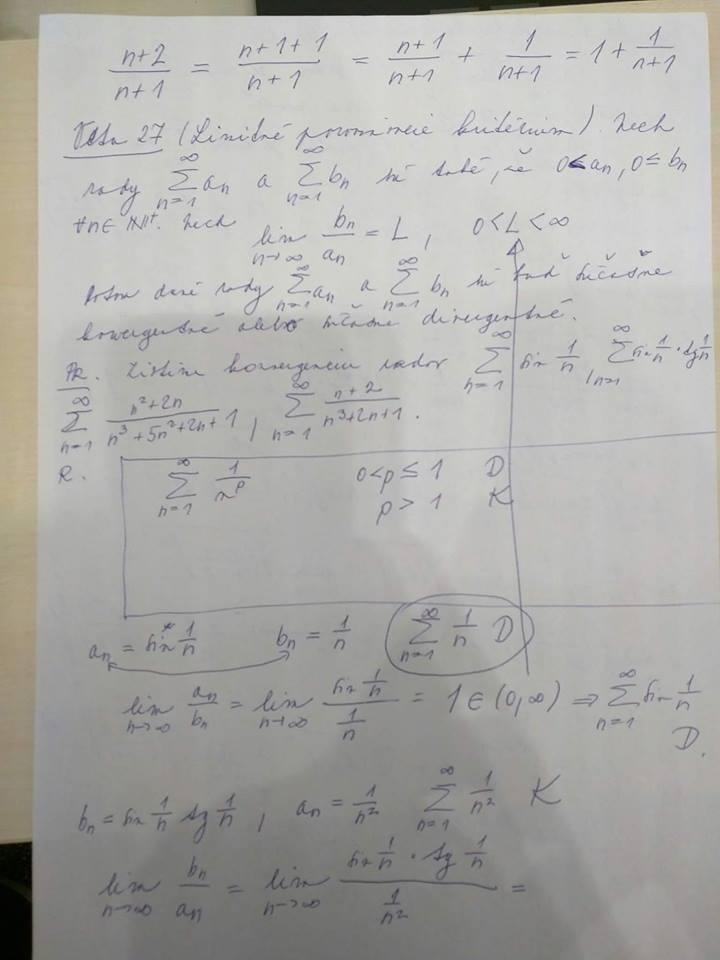 \frac{n+2}{n+1} = \frac{n+1+1}{n+1} = \frac{n+1}{n+1} + \frac{1}{n+1} = 1 + \frac{1}{n+1}
Veta 27 (Limitné porovnávacie kritérium). Nech
rady \sum_{n=1}^{\infty} a_n a \sum_{n=1}^{\infty} b_n sú také, že 0 < a_n, 0 ≤ b_n
∀n ∈ N⁺. Nech \lim_{n→∞} \frac{b_n}{a_n} = L, 0 < L < ∞
Potom dané rady \sum_{n=1}^{\infty} a_n a \sum_{n=1}^{\infty} b_n sú buď súčasne
konvergentné alebo súčasne divergentné.
Pr. Zistime konvergenciu radov \sum_{n=1}^{\infty} sin \frac{1}{n}, \sum_{n=1}^{\infty} sin \frac{1}{n} · tg \frac{1}{n}
\sum_{n=1}^{\infty} \frac{n^2+2n}{n^3+5n^2+2n+1}, \sum_{n=1}^{\infty} \frac{n+2}{n^3+2n+1}.
R. \sum_{n=1}^{\infty} \frac{1}{n^p} 0 < p ≤ 1 D
p > 1 K
a_n = sin \frac{1}{n} b_n = \frac{1}{n} \sum_{n=1}^{\infty} \frac{1}{n} D
\lim_{n→∞} \frac{a_n}{b_n} = \lim_{n→∞} \frac{sin \frac{1}{n}}{\frac{1}{n}} = 1 ∈ (0, ∞) ⇒ \sum_{n=1}^{\infty} sin \frac{1}{n}
D.
b_n = sin \frac{1}{n} tg \frac{1}{n}, a_n = \frac{1}{n^2} \sum_{n=1}^{\infty} \frac{1}{n^2} K
\lim_{n→∞} \frac{b_n}{a_n} = \lim_{n→∞} \frac{sin \frac{1}{n} · tg \frac{1}{n}}{\frac{1}{n^2}} =